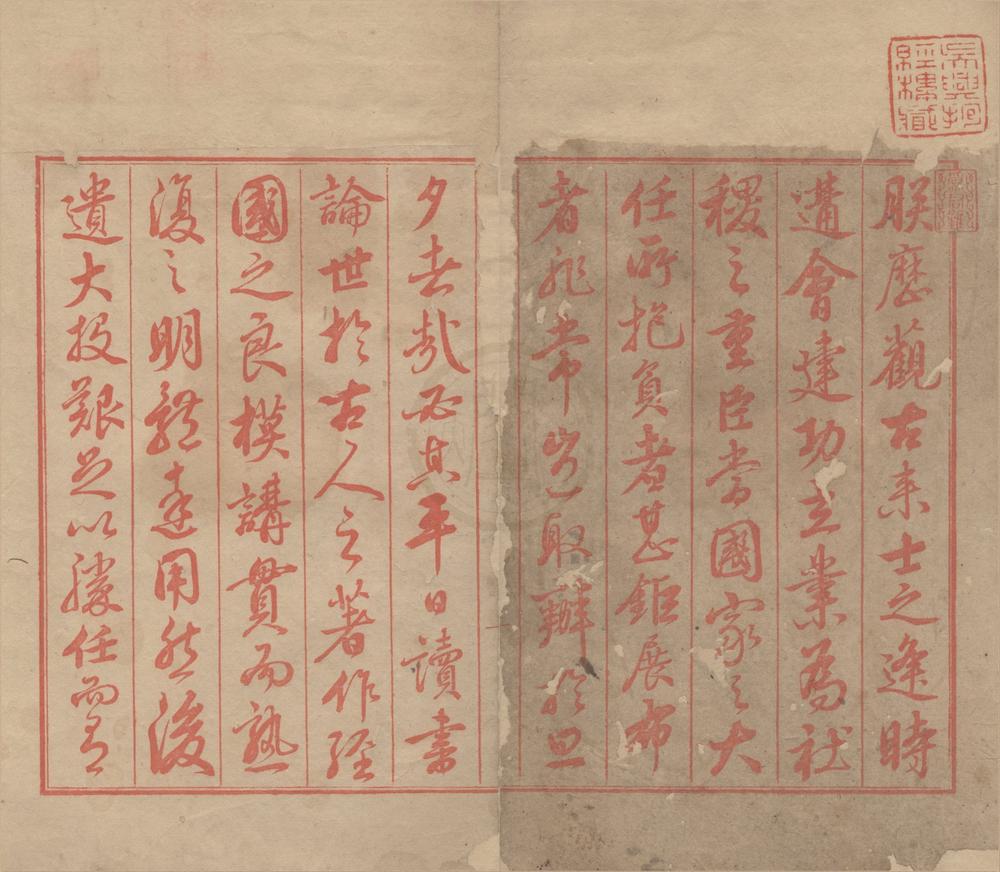 朕歷觀古來士之逢時
遘會建功立業為社
稷之重臣當國家之大
任所抱負者甚鉅展布
者非常豈取辦於旦
夕者哉必其平日讀書
論世於古人之著作經
國之良模講貫而熟
復之明體達用然後
遺大投艱足以勝任而有
吳興抱
經樓藏